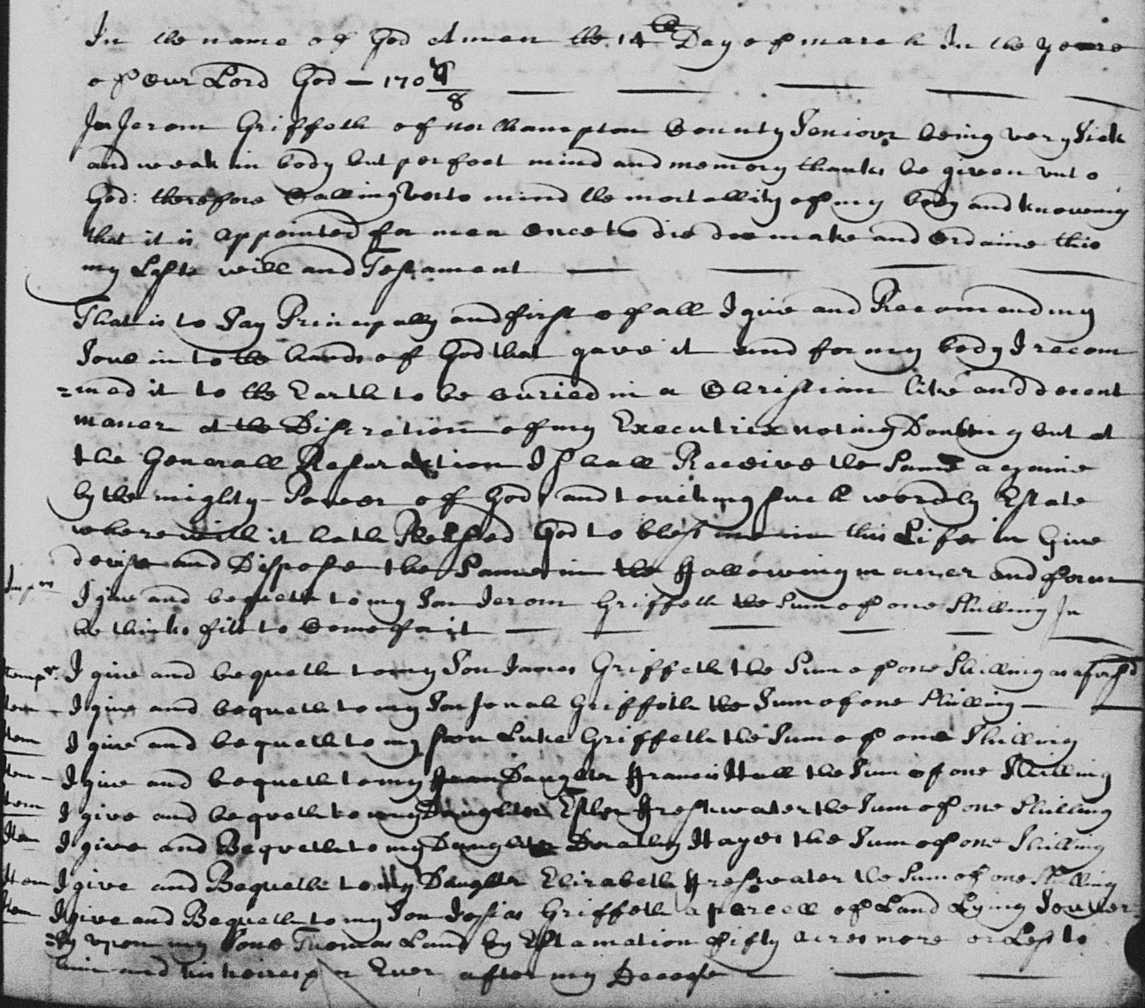 In the name of God Amen the 14th Day of march In the yeare
of our Lord God — 1707/8
Jerom Griffeth of northampton County Seniour being very Sick
and weak in body but perfect mind and memory thanks be given unto
God: therefore Calling unto mind the mortallity of my body and knowing
that it is appointed for men once to die doe make and ordaine this
my Laste will and Testament
That is to Say Principally and first of all I give and Recomend my
Soul in to the hands of God that gave it and for my body I recom
=mend it to the Earth to be buried in a Christian like and decent
maner at the Discration of my Executrix noting Doubting but at
the Generall Resuraction I shall Receive the Same againe
by the mighty Power of God and touching such wordly Estate
where with it hath Plessed God to bless me in this Life I Give
devise and Dispose the Same in the ffallowing maner and form
Imprs I give and bequeth to my Son Jerom Griffeth the Sum of one Shilling If
he thinks fitt to Come for it
I give and bequeth to my Son James Griffeth the Sum of one Shilling as aforsd
Item I give and bequeth to my Son Jonah Griffeth the Sum of one Shilling —
Item I give and bequeth to my Son Luke Griffeth the Sum of one Shilling
Item I give and bequeth to my Daughter ffrancis Hall the Sum of one Shilling
Item I give and bequeth to my Daughter Esther ffreshwater the Sum of one Shilling
Item I give and Bequeth to my Daughter Dorathy Hayes the Sum of one Shilling
Item I give and Bequethe to my Daughter Elizabeth ffreshwater the Sum of one Shilling
Item I give and Bequeth to my Son Josias Griffeth a parcell of Land Lying
upon my Sone Thomas Land by Estamation fifty acres more or Less to
him and his heires for Ever after my Decese